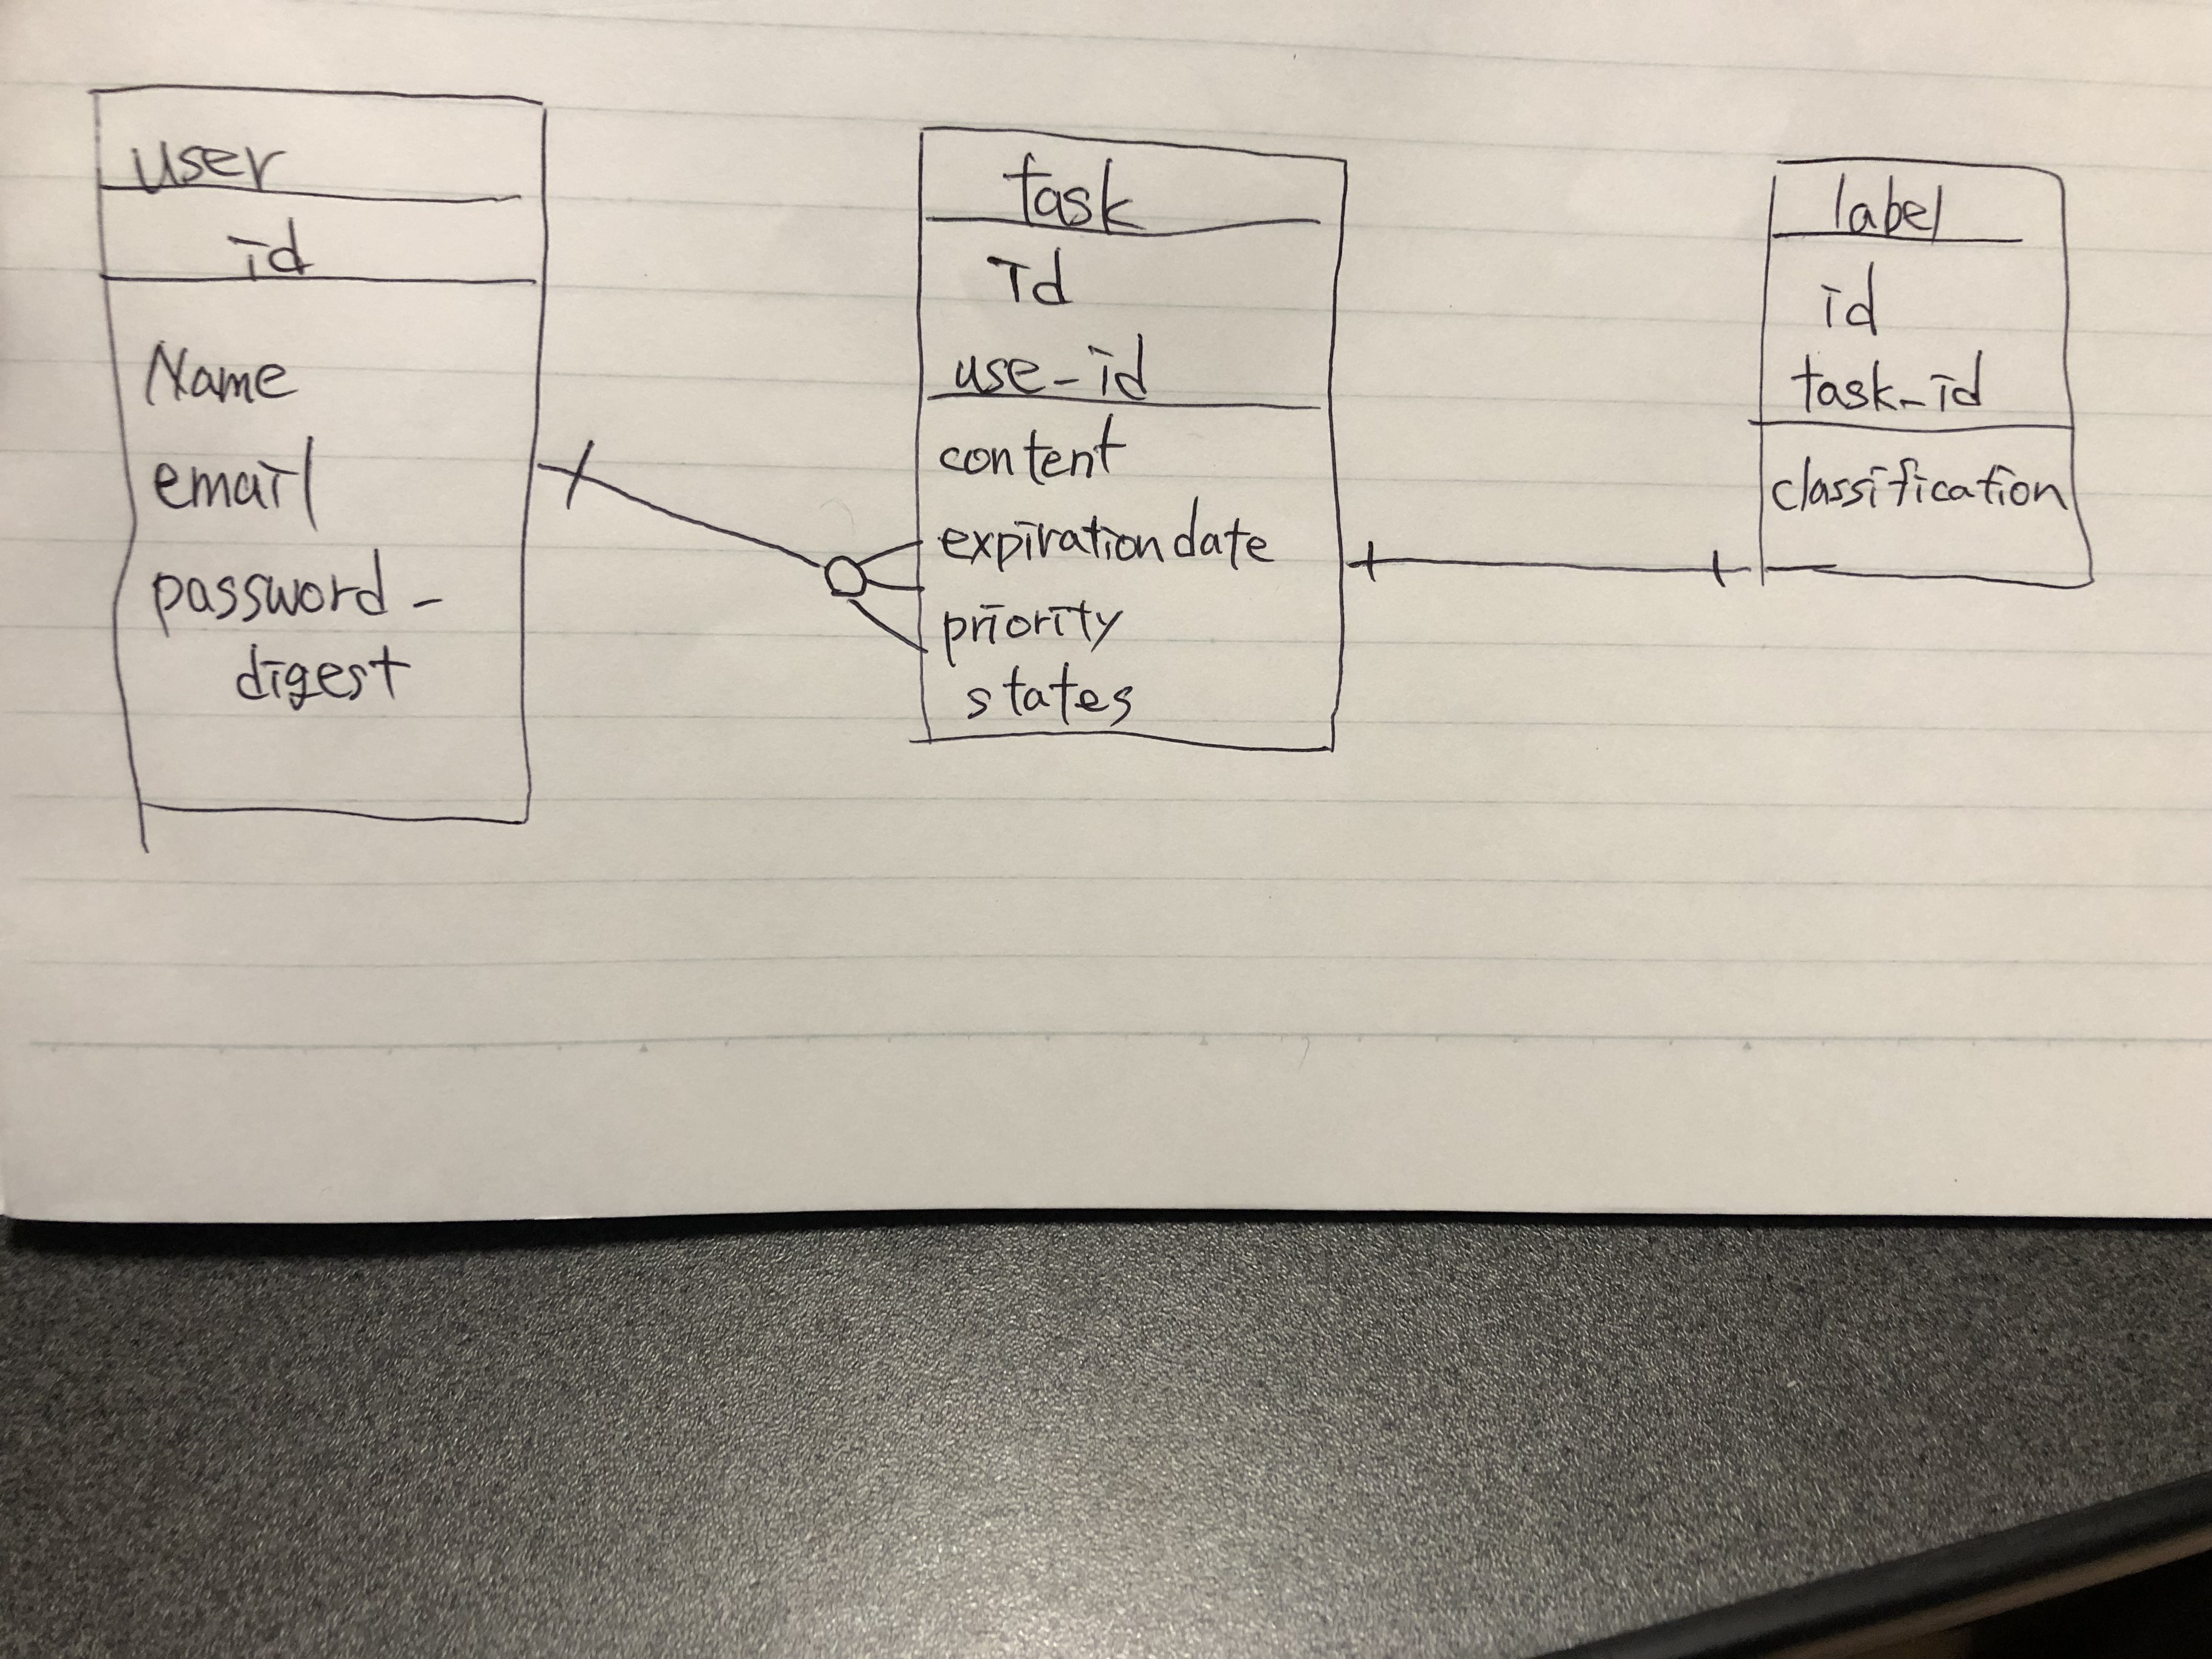 user
id
Name
email
password-
digest
task
id
use_id
content
expiration date
priority
states
label
id
task_id
classification